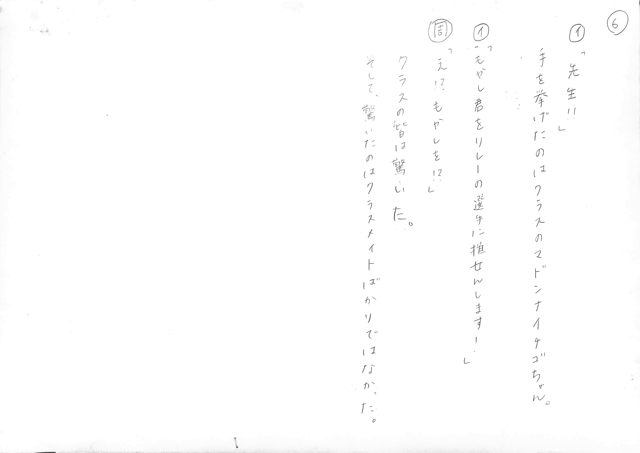 ⑥
イ「先生!!」
手を挙げたのはクラスのマドンナイチゴちゃん。
イ「もやし君をリレーの選手に推せんします!」
周「え!?もやしを!?」
クラスの皆は驚いた。
そして、驚いたのはクラスメイトばかりではなかった。